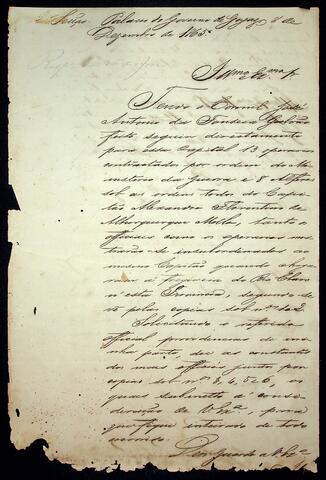 Palacio do Governo de Goyaz 2 de
Dezembro de 1865.
Illmo Exmo Sr.
Tendo o Coronel José
Antonio da Fonseca Galvão
feito seguir directamente
para essa Capital 13 operarios
contractados por ordem do Mi-
nisterio da Guerra e 8
sob as ordens todos do Capi-
tão Florentino de
Albuquerque Mello, tanto
officiaes como os operarios mos-
trarão-se insubordinados ao
mesmo Capitão quando
á do Rio Claro
n'esta Provincia, segundo se
vê pelas copias sob nos 1 e 2.
Solicitando o referido
official providencias de mi-
nha parte, dei as constantes
dos meus officios juntos por
copias sob nos 3, 4, 5 e 6, os
quaes submetto á consi-
deração de V. Exa, para
que fique inteirado de todo
occorrido.
Deos Guarde a V. Exa